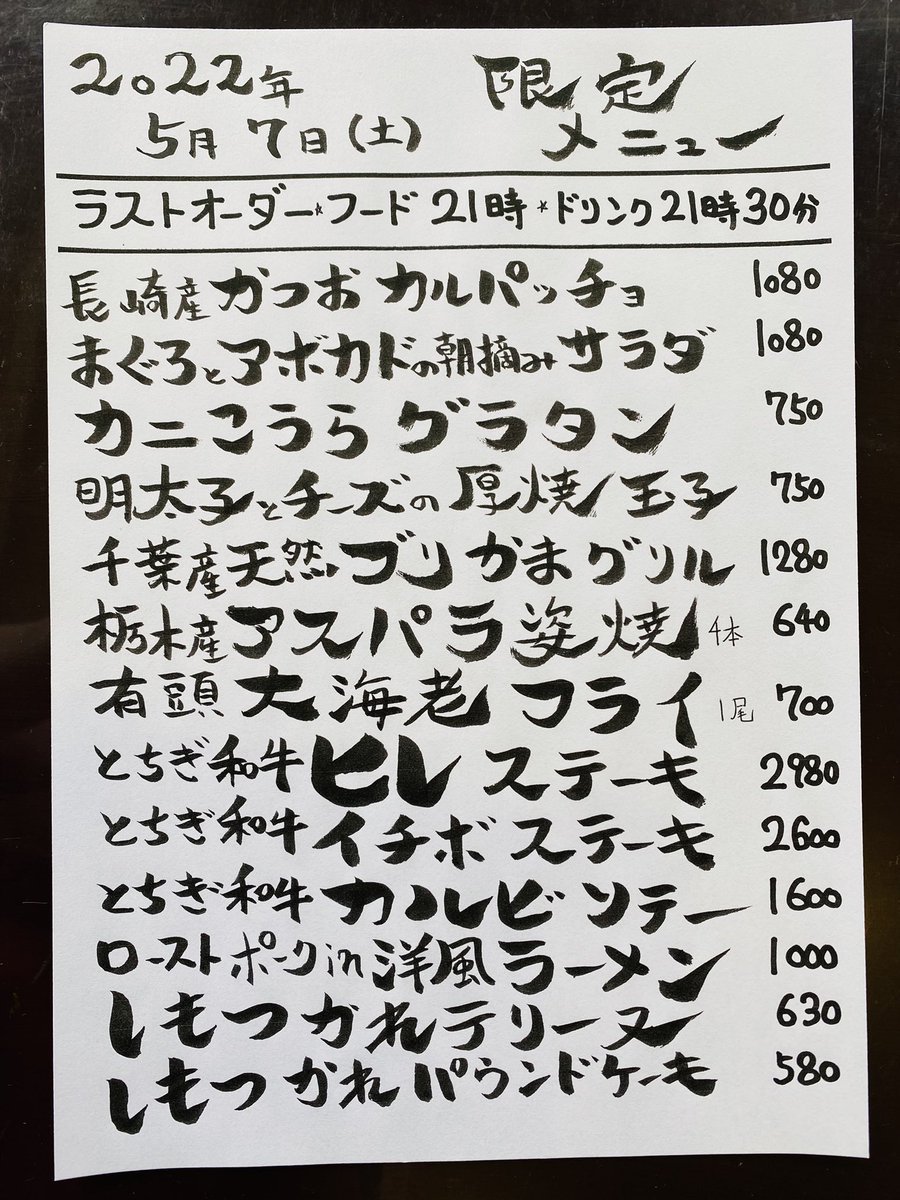 2022年 限定
5月7日(土) メニュー
ラストオーダー*フード 21時 * ドリンク21時30分
長崎産かつおカルパッチョ 1080
まぐろとアボカドの朝摘みサラダ 1080
カニこうらグラタン 750
明太子とチーズの厚焼玉子 750
千葉産天然ブリかまグリル 1280
栃木産アスパラ姿焼 4本 640
有頭大海老フライ 1尾 700
とちぎ和牛ヒレステーキ 2980
とちぎ和牛イチボステーキ 2600
とちぎ和牛カルビソテー 1600
ローストポークin洋風ラーメン 1000
しもつかれテリーヌ 630
しもつかれパウンドケーキ 580